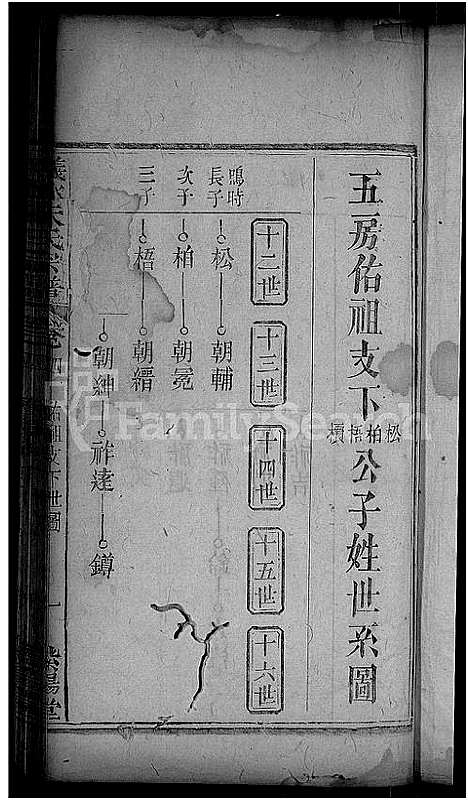 五房佑祖支下松柏梧檟公子姓世系圖
十二世
十三世
十四世
十五世
十六世
鳴時長子
松
朝輔
次子
柏
朝冕
三子
梧
朝縉
朝紳
祚達
鐏
氏宗譜
卷四
佑祖支下世圖
一
紫陽堂
FamilySearch